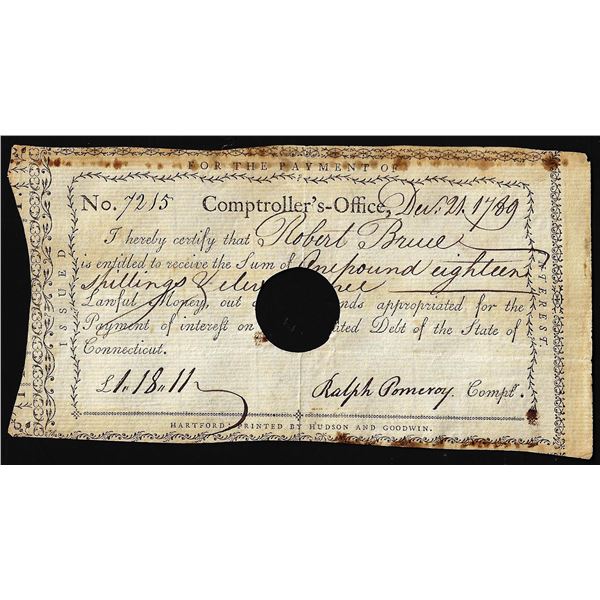 FOR THE PAYMENT OF
ISSUED
INTEREST
No. 7215 Comptroller's-Office, Dec. 21. 1789
I hereby certify that Robert Bruce
is entitled to receive the Sum of One pound eighteen
shillings & eleven
Lawful Money, out appropriated for the
Payment of interest on Debt of the State of
Connecticut.
£1,,18,,11 Ralph Pomeroy. Compt.
HARTFORD: PRINTED BY HUDSON AND GOODWIN.